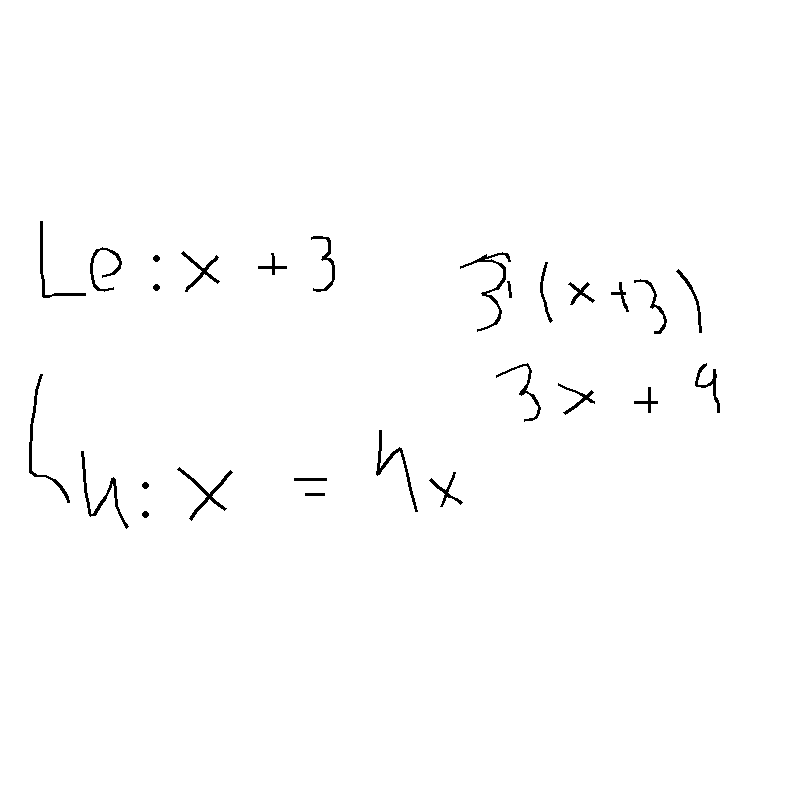 Le: x + 3
3 (x+3)
3x + 9
Lu: x = 4x